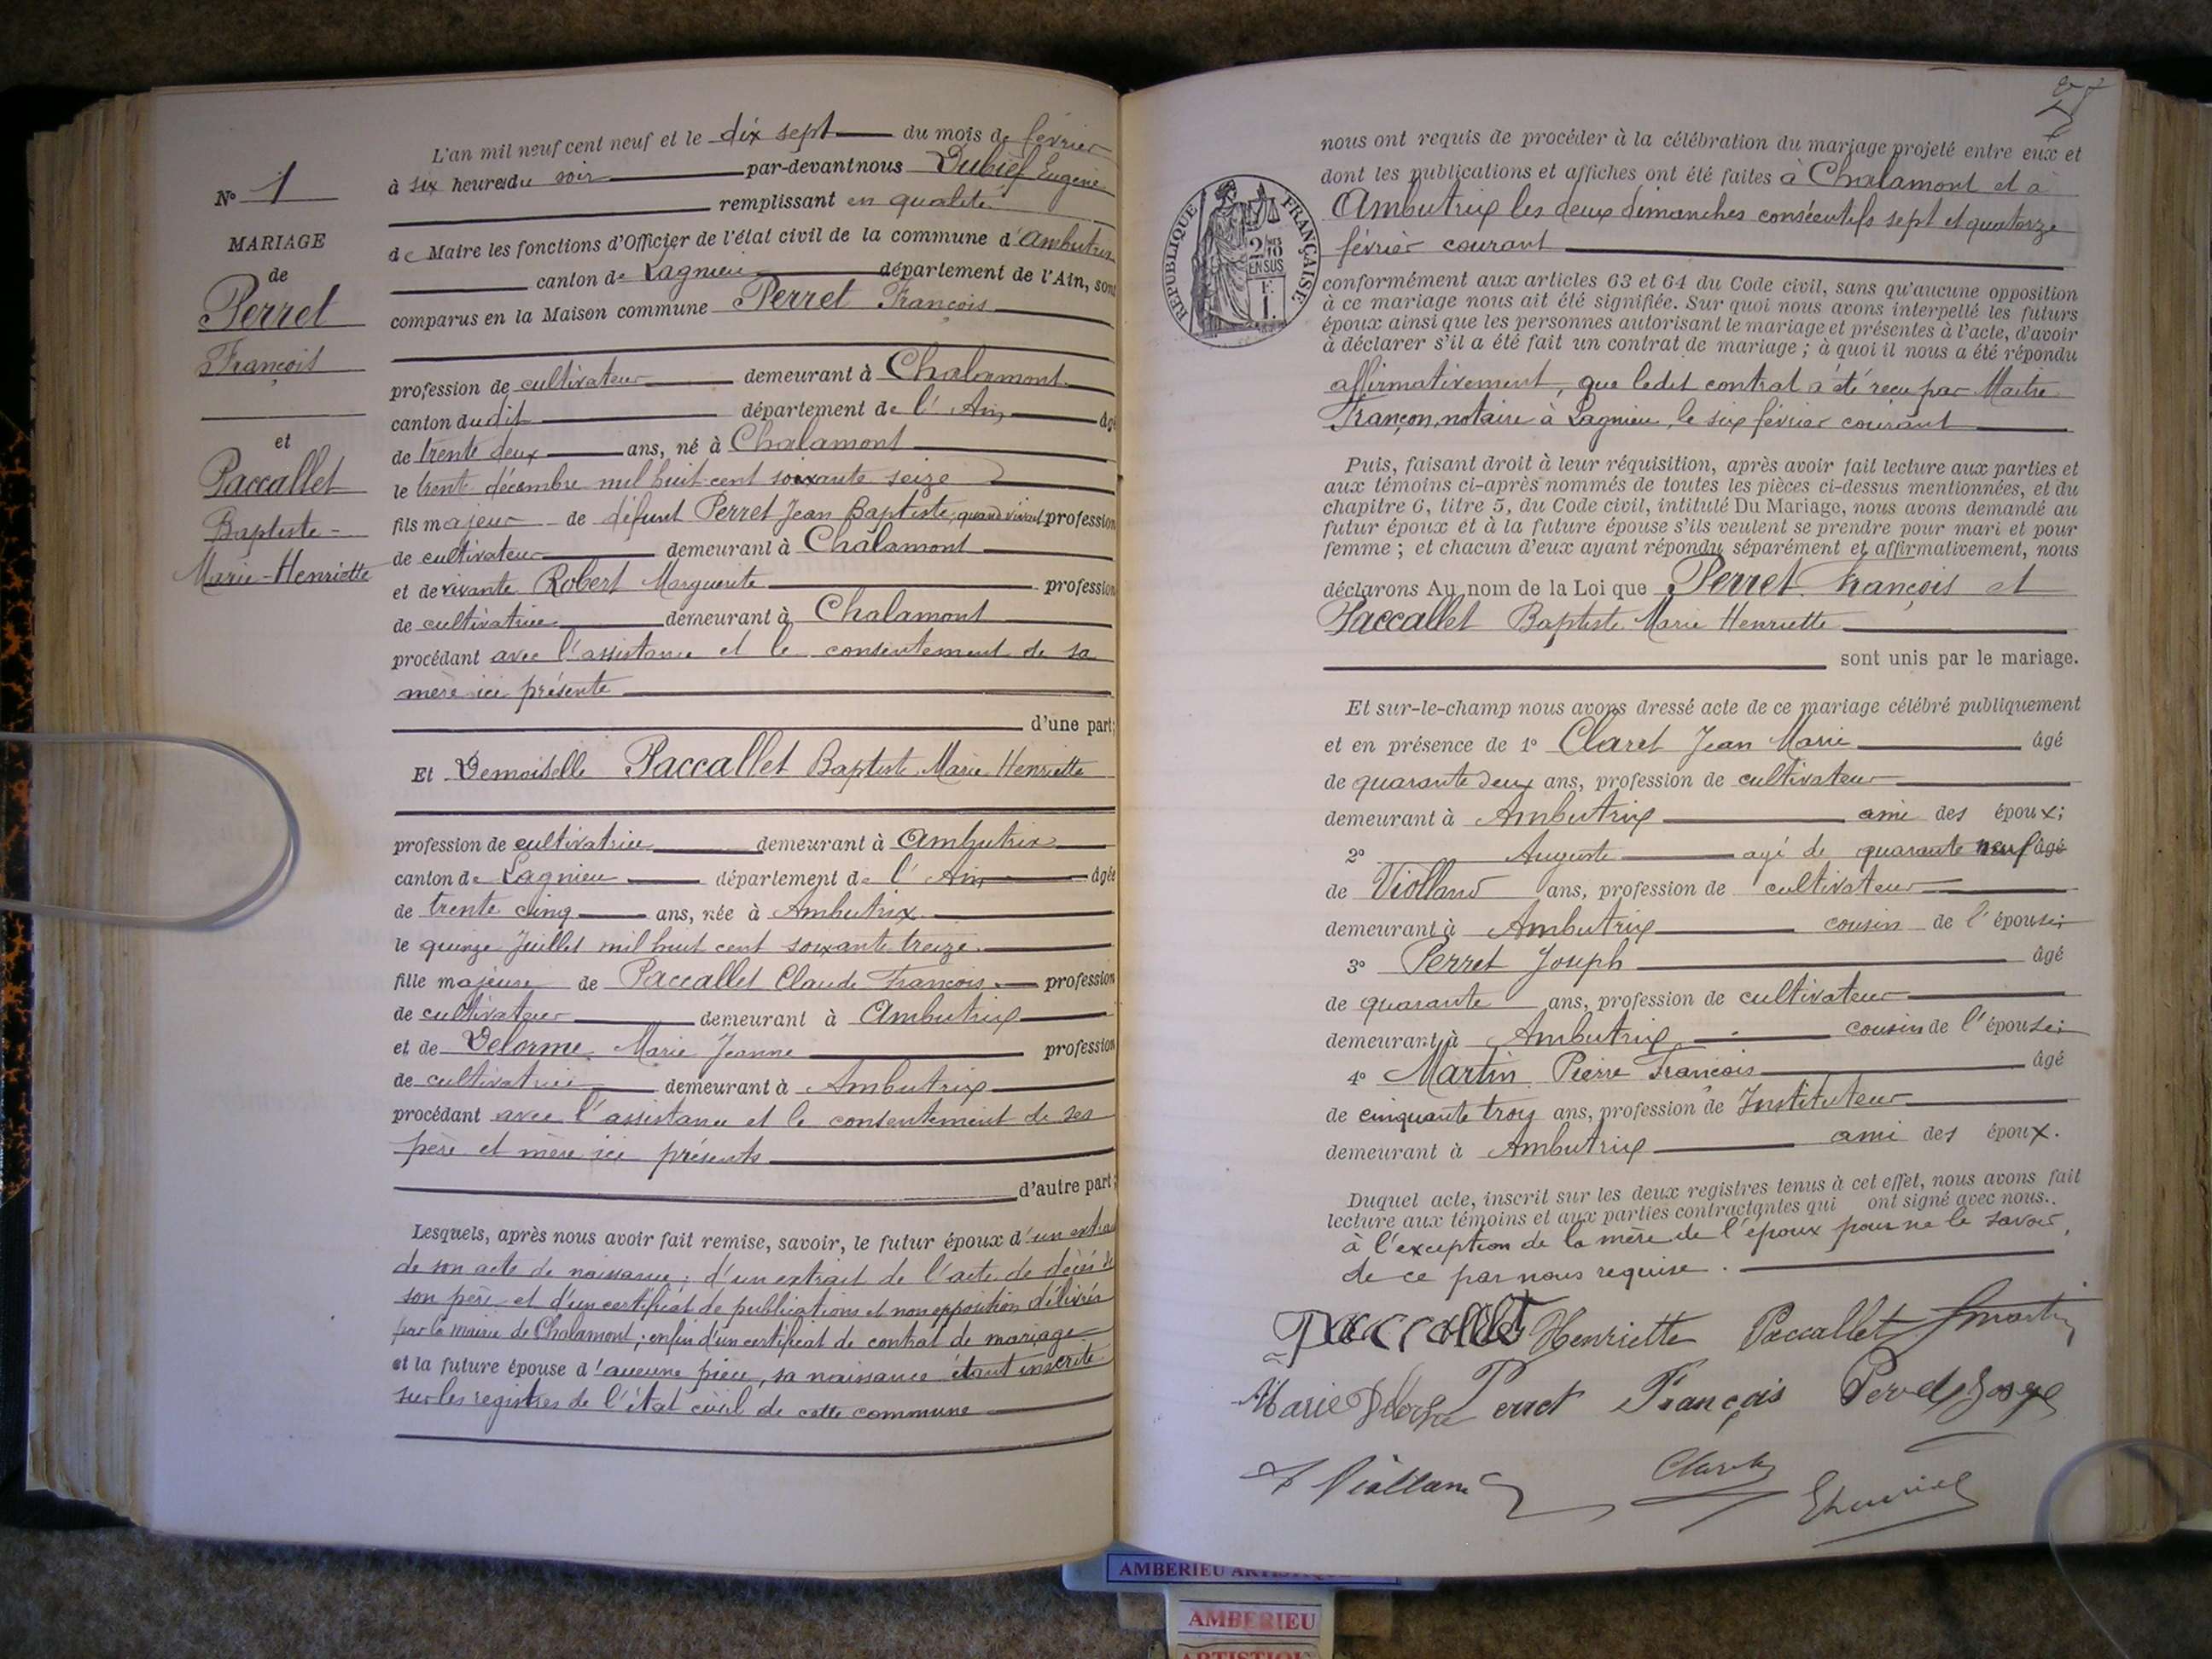 N° 1
MARIAGE
de
Perret
François
et
Paccallet
Baptiste-
Marie-Henriette
L'an mil neuf cent neuf et le dix sept du mois de février
à six heures du soir par-devant nous Dubief Eugène
remplissant en qualité
de Maire les fonctions d'Officier de l'état civil de la commune d'Ambutrix
canton de Lagnieu département de l'Ain, sont
comparus en la Maison commune Perret François
profession de cultivateur demeurant à Chalamont
canton dudit département de l'Ain âgé
de trente deux ans, né à Chalamont
le trente décembre mil huit cent soixante seize
fils majeur de défunt Perret Jean Baptiste, quand vivant profession
de cultivateur demeurant à Chalamont
et de vivante Robert Marguerite profession
de cultivatrice demeurant à Chalamont
procédant avec l'assistance et le consentement de sa
mère ici présente
d'une part;
Et Demoiselle Paccallet Baptiste Marie Henriette
profession de cultivatrice demeurant à Ambutrix
canton de Lagnieu département de l'Ain âgée
de trente cinq ans, née à Ambutrix
le quinze Juillet mil huit cent soixante treize
fille majeure de Paccallet Claude François profession
de cultivateur demeurant à Ambutrix
et de Delorme Marie Jeanne profession
de cultivatrice demeurant à Ambutrix
procédant avec l'assistance et le consentement de ses
père et mère ici présents
d'autre part;
Lesquels, après nous avoir fait remise, savoir, le futur époux d'un extrait
de son acte de naissance; d'un extrait de l'acte de décès de
son père et d'un certificat de publications et non opposition délivrés
par la mairie de Chalamont; enfin d'un certificat de contrat de mariage
et la future épouse d'aucune pièce, sa naissance étant inscrite
sur les registres de l'état civil de cette commune
nous ont requis de procéder à la célébration du mariage projeté entre eux et
dont les publications et affiches ont été faites à Chalamont et à
Ambutrix les deux dimanches consécutifs sept et quatorze
février courant
RÉPUBLIQUE FRANÇAISE
2/10 EN SUS
conformément aux articles 63 et 64 du Code civil, sans qu'aucune opposition
à ce mariage nous ait été signifiée. Sur quoi nous avons interpellé les futurs
époux ainsi que les personnes autorisant le mariage et présentes à l'acte, d'avoir
à déclarer s'il a été fait un contrat de mariage; à quoi il nous a été répondu
affirmativement, que ledit contrat a été reçu par Maitre
Françon, notaire à Lagnieu, le six février courant
Puis, faisant droit à leur réquisition, après avoir fait lecture aux parties et
aux témoins ci-après nommés de toutes les pièces ci-dessus mentionnées, et du
chapitre 6, titre 5, du Code civil, intitulé Du Mariage, nous avons demandé au
futur époux et à la future épouse s'ils veulent se prendre pour mari et pour
femme; et chacun d'eux ayant répondu séparément et affirmativement, nous
déclarons Au nom de la Loi que Perret François et
Paccallet Baptiste Marie Henriette
sont unis par le mariage.
Et sur-le-champ nous avons dressé acte de ce mariage célébré publiquement
et en présence de 1° Claret Jean Marie âgé
de quarante deux ans, profession de cultivateur
demeurant à Ambutrix ami des époux;
2° Auguste agé de quarante neuf âgé
de Violland ans, profession de cultivateur
demeurant à Ambutrix cousin de l'épouse;
3° Perret Joseph âgé
de quarante ans, profession de cultivateur
demeurant à Ambutrix cousin de l'épouse;
4° Martin Pierre François âgé
de cinquante trois ans, profession de Instituteur
demeurant à Ambutrix ami des époux.
Duquel acte, inscrit sur les deux registres tenus à cet effet, nous avons fait
lecture aux témoins et aux parties contractantes qui ont signé avec nous..
à l'exception de la mère de l'époux pour ne le savoir,
de ce par nous requise.
Paccallet Henriette Paccallet Martin
Marie Perret François
A Violland Claret
AMBERIEU
AMBERIEU